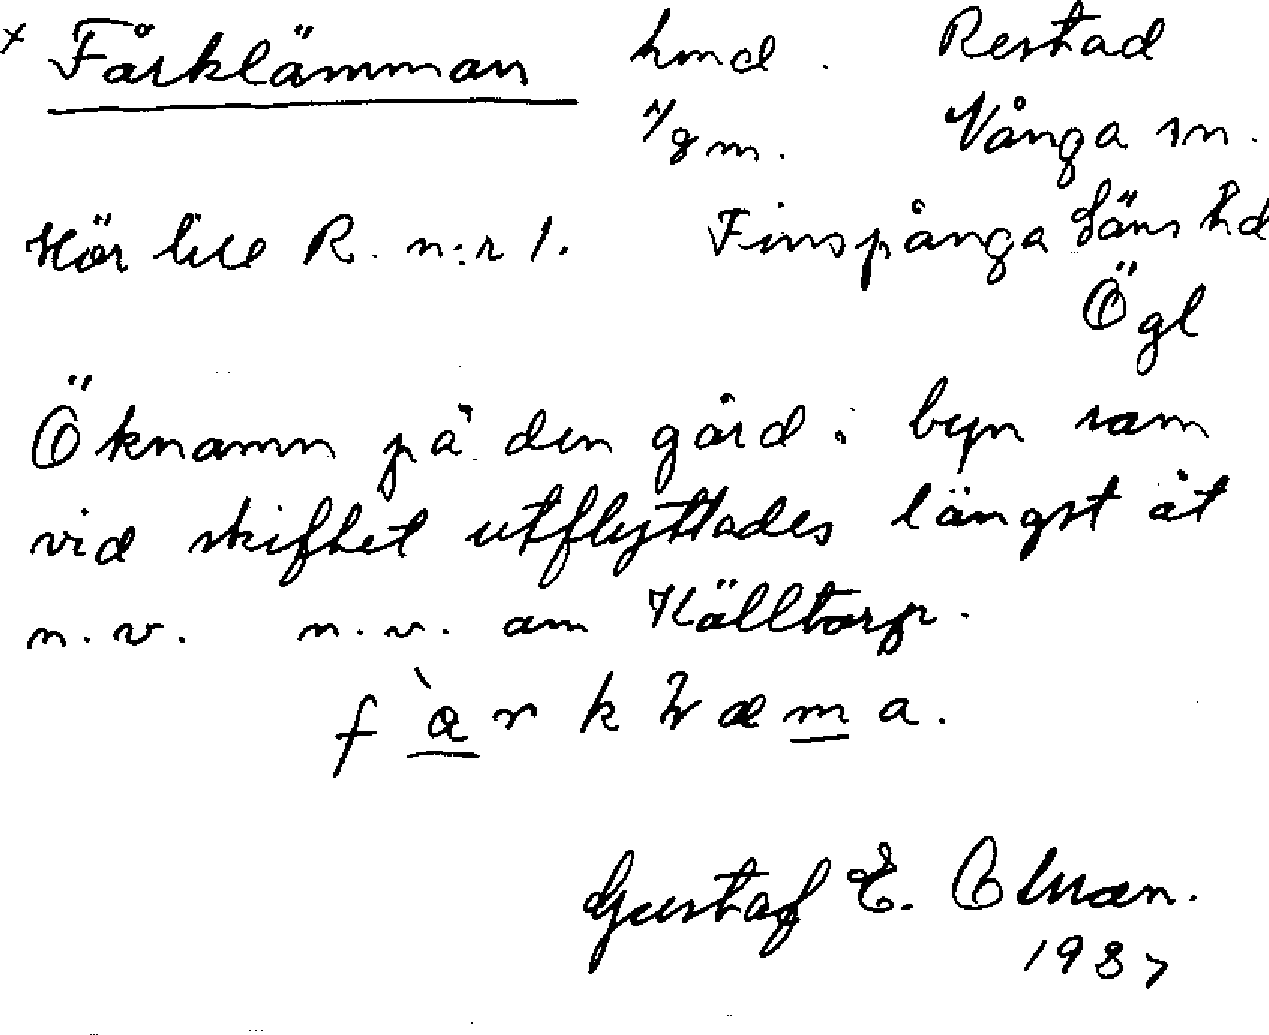 x Fårklämman hmd. Restad
1/8 m. Vånga sn.
Hör till R. n:r 1. Finspånga läns hd
Ögl
Öknamn på den gård i byn som
vid skiftet utflyttades längst åt
n.v. n.v. om Källtorp.
Gustaf E. Olsson.
1937